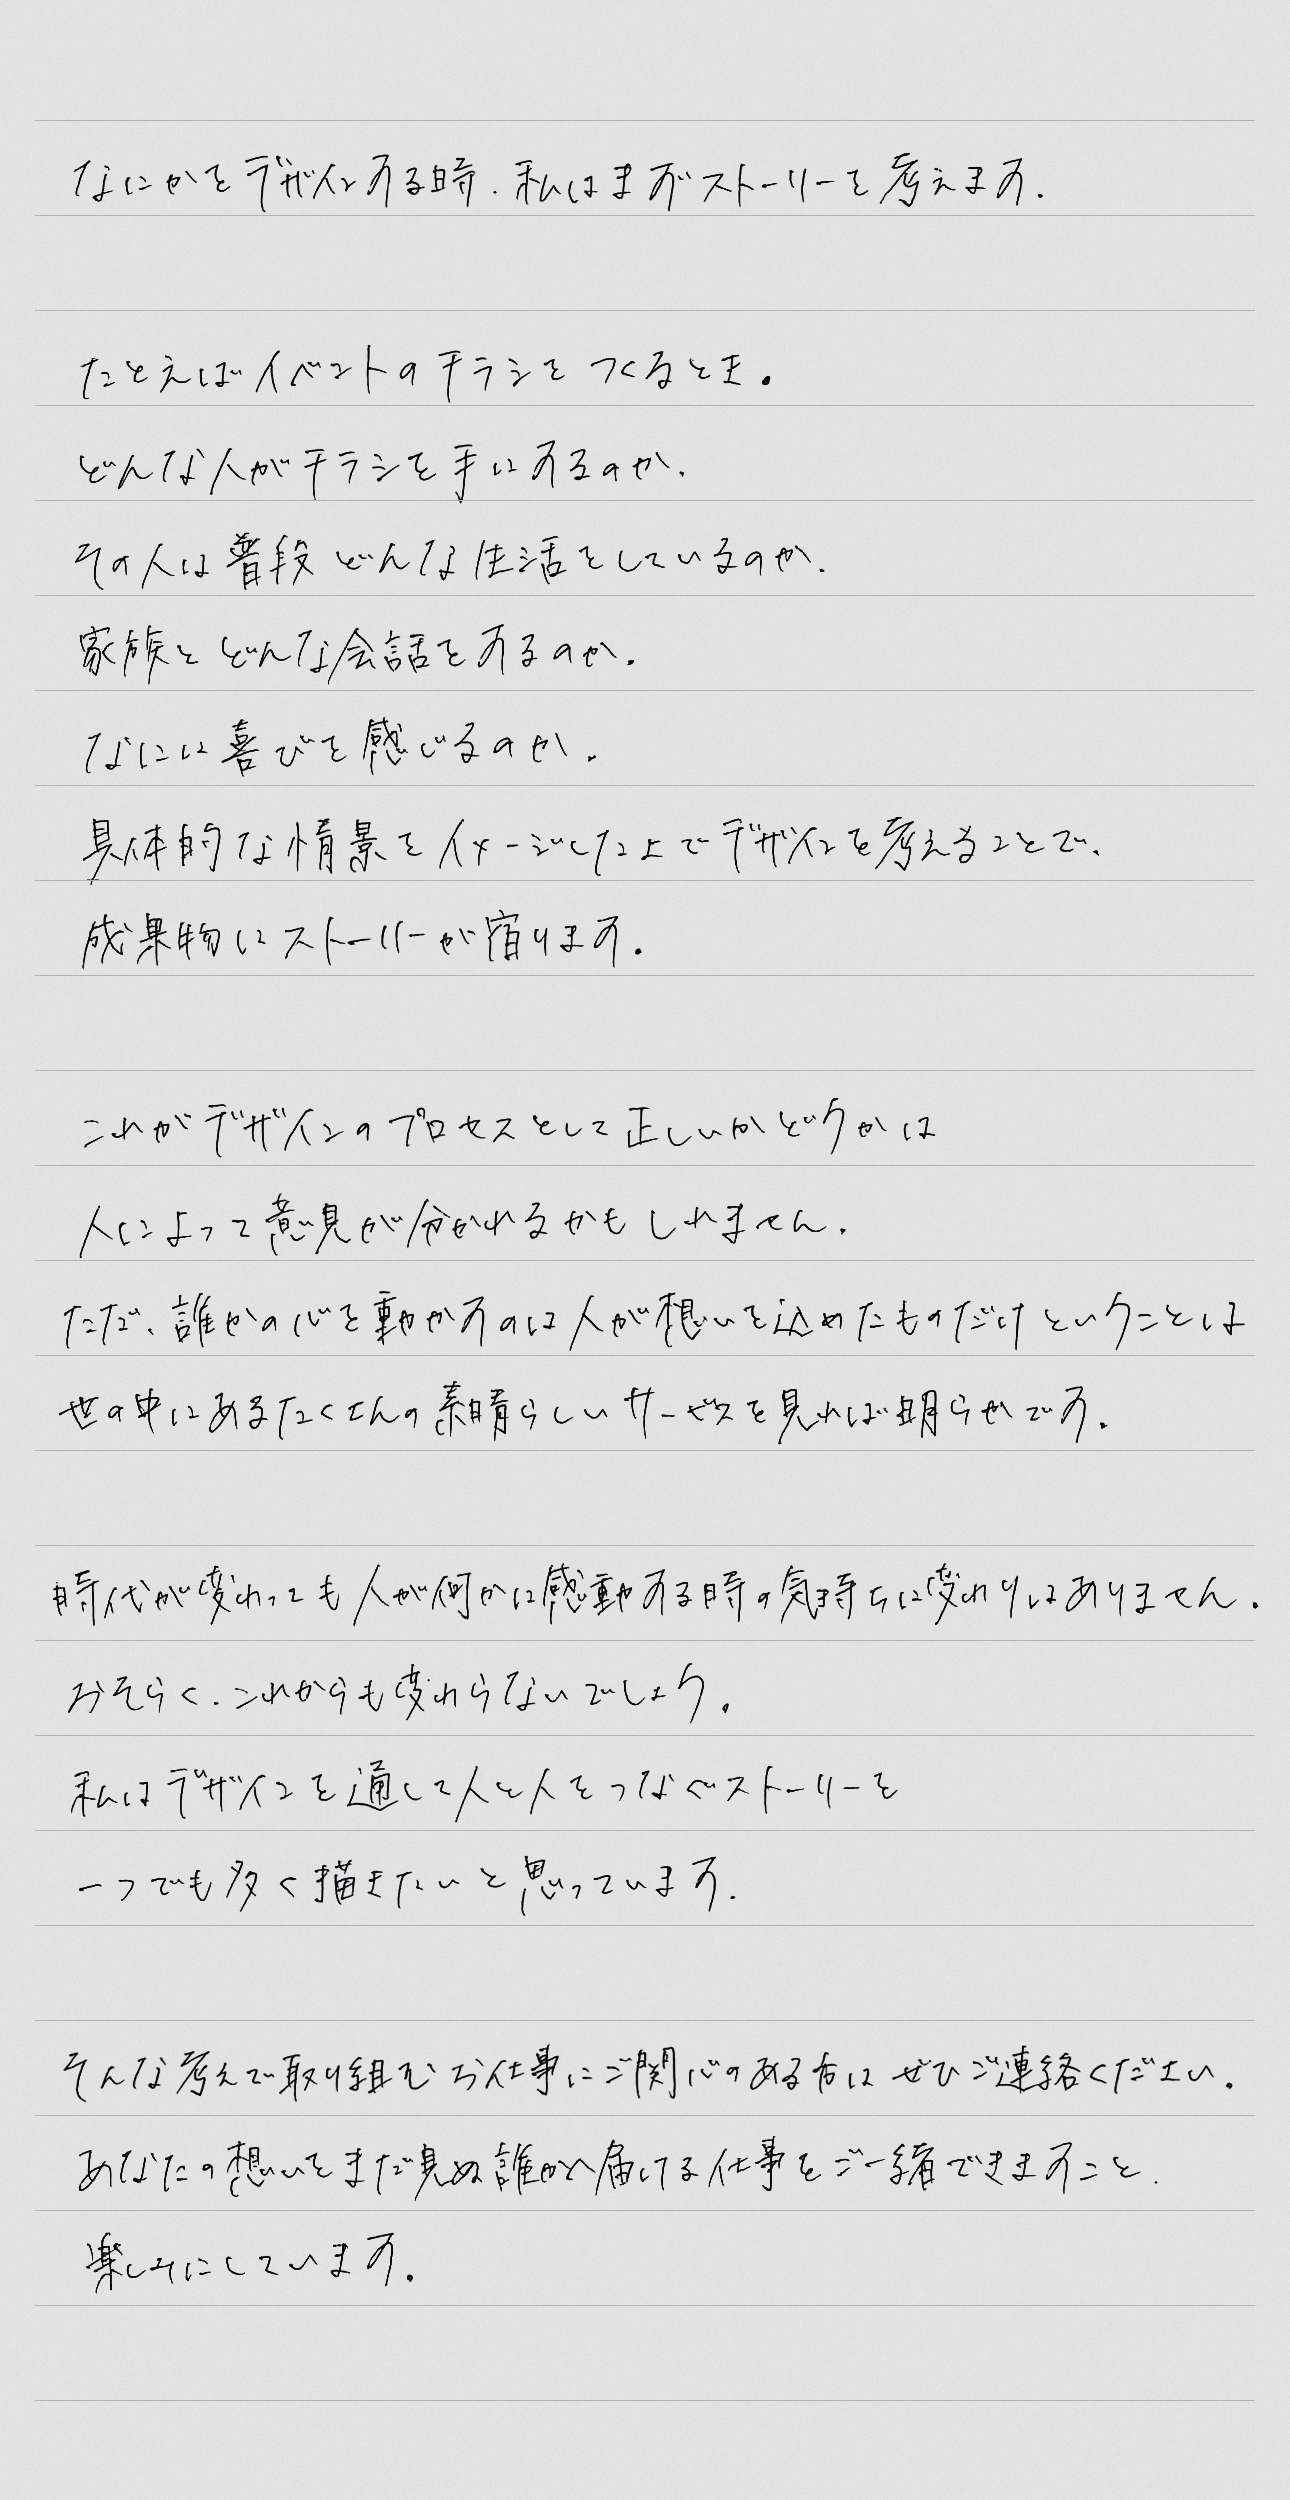 なにかをデザインする時、私はまずストーリーを考えます。
たとえばイベントのチラシをつくるとき。
どんな人がチラシを手にするのか、
その人は普段どんな生活をしているのか、
家族とどんな会話をするのか。
なにに喜びを感じるのか。
具体的な情景をイメージした上でデザインを考えることで、
成果物にストーリーが宿ります。
これがデザインのプロセスとして正しいかどうかは
人によって意見が分かれるかもしれません。
ただ、誰かの心を動かすのは人が想いを込めたものだけということは
世の中にあるたくさんの素晴らしいサービスを見れば明らかです。
時代が変わっても人が何かに感動する時の気持ちに変わりはありません。
おそらく、これからも変わらないでしょう。
私はデザインを通して人と人をつなぐストーリーを
一つでも多く描きたいと思っています。
そんな考えで取り組むお仕事にご関心のある方はぜひご連絡ください。
あなたの想いをまだ見ぬ誰かへ届ける仕事をご一緒できますこと、
楽しみにしています。